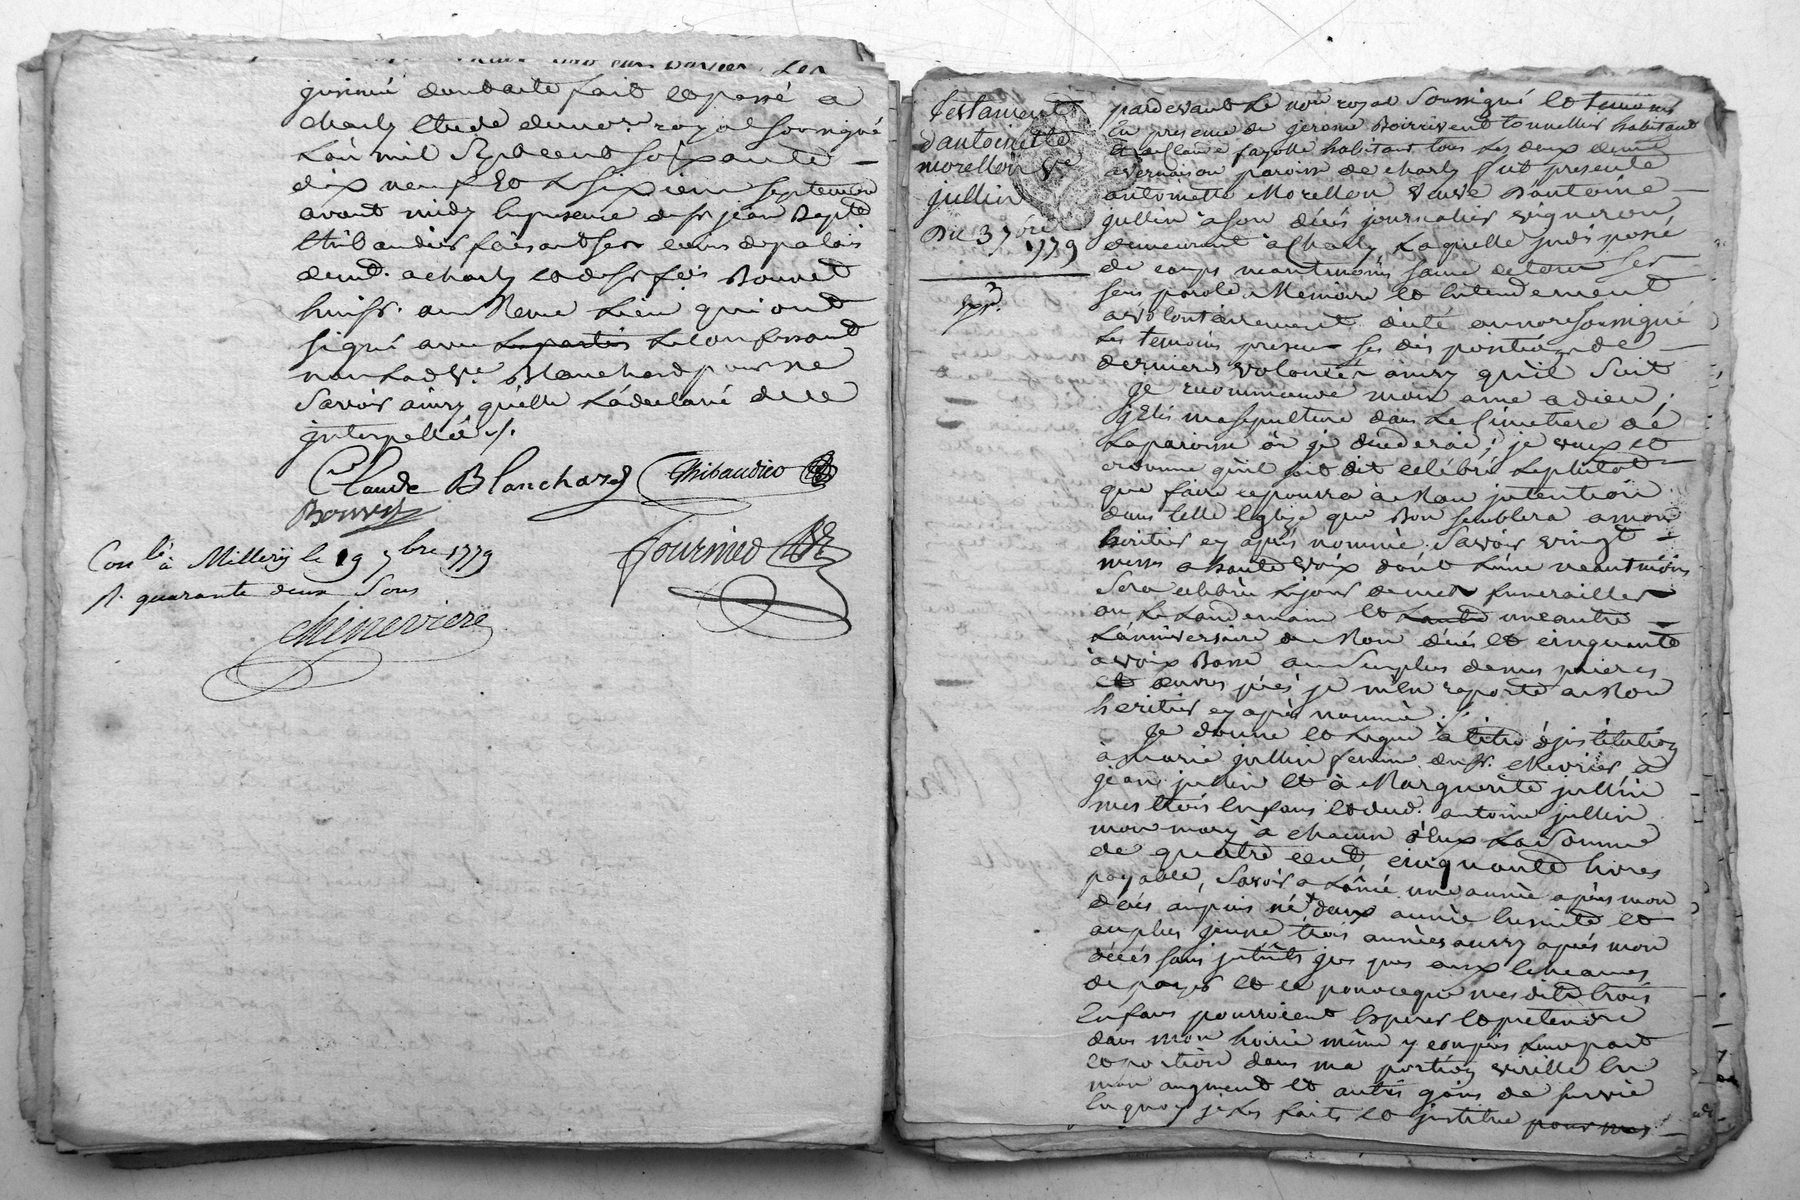 dont acte fait et passé a
Charly Etude dunore royal soussigné
Lan mil Sept cent soixante
dix neuf Et Le Sixieme Septembre
avant midy En presence de sr jean Bapte
thibaudier faisant ses cours de palais
demt. a charly et de sr fois Bonnet
huissr. au Meme Lieu qui ont
signé avec Le confessant
non Lad ve. Blanchard pour ne
savoir ainsy quelle La declaré de ce
jnterpellée ./.
Claude Blanchard Thibaudier
Bonnet
Fournier
Conlé à Millery le 19 7bre 1779
R. quarante deux sous
Chinevière
Testament
d'antoinette
morellon ve
jullin
Du 3 7bre
1779
expé.
pardevant Le nore royal Soussigné et temoins
En presence de jerome Boirivent tonnellier habitant
et de Claude fayolle habitant tous Les deux demt
a vernaison paroisse de charly fut presente
antoinette Morellon veuve Dantoine
jullin a son décés journalier vigneron
demeurant a Charly Laquelle jndisposée
de corps neantmoins saine de tous ses
sens parole Memoire et Entendement
a volontairement dicté au nore soussigné
Les temoins presens ses dispositions de
dernieres volontés ainsy quil suit
Je recommande mon ame a dieu.
jElis ma sepulture dans Le Simetiere de
La paroisse ou je décederai; je veux et
ordonne quil soit dit celebré Le plutot
que faire ce pourra à Mon jntention
dans telle Eglise que Bon semblera a mon
heritier cy après nommé. Savoir vingt
messes a haute voix dont L'une neantmoins
sera celebrée Le jour de mes funerailles
ou Le Landemain et une autre
Lanniversaire de Mon décés et cinquante
à voix Basse au surplus de mes prieres
et œuvres pies je m'en raporte a Mon
heritier cy après nommé ./.
Je donne et Legue à titre d'jnstitution
à Marie jullin femme du sr. Chevrier a
jean jullin et à Marguerite jullin
mes trois Enfans et dud. antoine jullin
mon mary à chacun d'Eux La Somme
de quatre cent cinquante livres
payable, Savoir a Lainé une année après mon
décés au puis né deux année Ensuite et
au plus jeune trois années aussy après mon
décés sans jnterets jus ques aux Echeances
de payer et ce pour ce que mesdits trois
Enfans pourroient Esperer et pretendre
dans mon hoirie même y compris Leur part
et portion dans ma portion virille En
mon augment et autres gains de survie
En quoy je Les faits et jnstitue pour mes